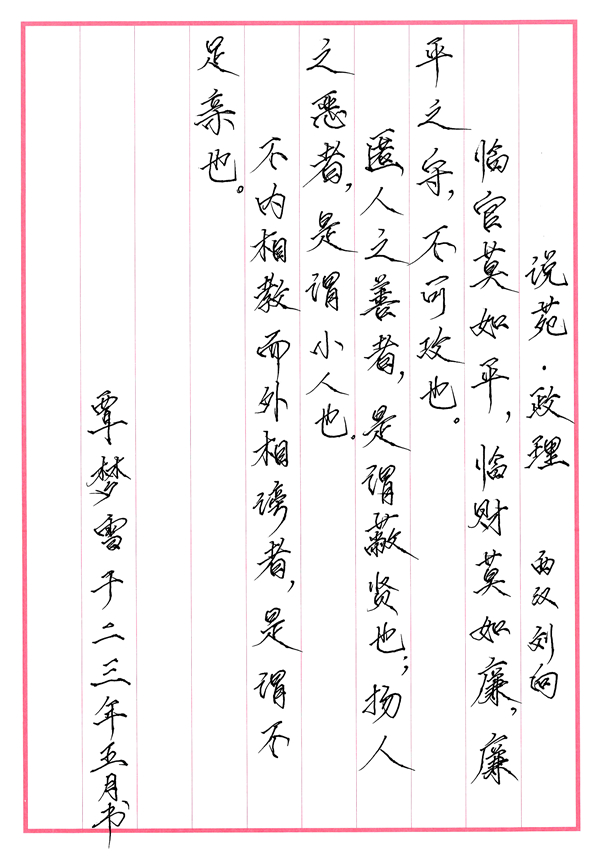 说苑·政理 西汉刘向
临官莫如平，临财莫如廉，廉
平之守，不可攻也。
匿人之善者，是谓蔽贤也；扬人
之恶者，是谓小人也。
不内相教而外相谤者，是谓不
足亲也。
覃梦雪于二三年五月书